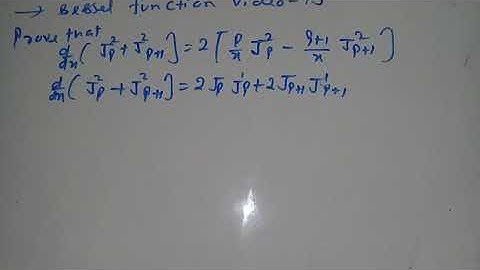 → Bessel function video-13
Prove that
d/dx ( J²p + J²p+1 ) = 2 [ p/x J²p - p+1/x J²p+1 ]
d/dx ( J²p + J²p+1 ) = 2 Jp J'p + 2 Jp+1 J'p+1